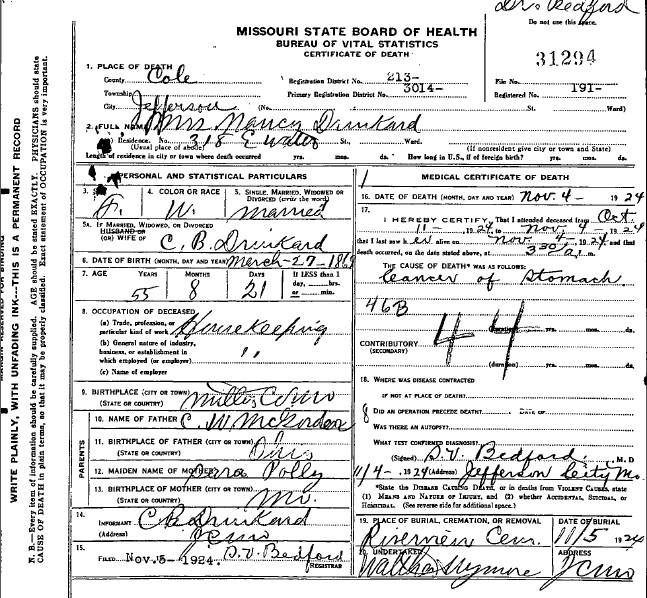 Dr. Bedford
Do not use this space.
MISSOURI STATE BOARD OF HEALTH
BUREAU OF VITAL STATISTICS
CERTIFICATE OF DEATH
31294
1. PLACE OF DEATH
County Cole
Registration District No. 213-
File No.
Township
Primary Registration District No. 3014-
Registered No. 191-
City Jefferson (No. St. Ward)
2. FULL NAME Mrs Nancy Drinkard
Residence. No. 318 E Water St., Ward.
(Usual place of abode) (If nonresident give city or town and State)
Length of residence in city or town where death occurred yrs. mos. ds. How long in U.S., if of foreign birth? yrs. mos. ds.
PERSONAL AND STATISTICAL PARTICULARS
3. 4. COLOR OR RACE 5. SINGLE, MARRIED, WIDOWED OR DIVORCED (write the word)
F. W. married
5A. IF MARRIED, WIDOWED, OR DIVORCED
HUSBAND OF
(OR) WIFE OF C. B. Drinkard
6. DATE OF BIRTH (MONTH, DAY AND YEAR) March-27-186
7. AGE YEARS MONTHS DAYS If LESS than 1 day, hrs. or min.
55 8 21
8. OCCUPATION OF DECEASED
(a) Trade, profession, or particular kind of work Housekeeping
(b) General nature of industry, business, or establishment in which employed (or employer) ''
(c) Name of employer
9. BIRTHPLACE (CITY OR TOWN)
(STATE OR COUNTRY) Miller Co mo
PARENTS
10. NAME OF FATHER C. W.
11. BIRTHPLACE OF FATHER (CITY OR TOWN)
(STATE OR COUNTRY)
12. MAIDEN NAME OF MOTHER Polly
13. BIRTHPLACE OF MOTHER (CITY OR TOWN)
(STATE OR COUNTRY) Mo.
14.
INFORMANT C B Drinkard
(Address) J C mo
15.
FILED Nov. 5- 1924. D. V. Bedford
REGISTRAR
MEDICAL CERTIFICATE OF DEATH
16. DATE OF DEATH (MONTH, DAY AND YEAR) Nov. 4- 1924
17.
I HEREBY CERTIFY, That I attended deceased from Oct.
11-, 1924, to Nov. 4-, 1924
that I last saw her alive on Nov. 4-, 1924 and that
death occurred, on the date stated above, at 3 30 a m.
THE CAUSE OF DEATH* WAS AS FOLLOWS:
Cancer of Stomach
46B
44
(duration) yrs. mos. ds.
CONTRIBUTORY
(SECONDARY)
(duration) yrs. mos. ds.
18. WHERE WAS DISEASE CONTRACTED
IF NOT AT PLACE OF DEATH?
DID AN OPERATION PRECEDE DEATH? DATE OF
WAS THERE AN AUTOPSY?
WHAT TEST CONFIRMED DIAGNOSIS?
(Signed) D. V. Bedford, M. D
11/4-, 1924 (Address) Jefferson City Mo.
*State the DISEASE CAUSING DEATH, or in deaths from VIOLENT CAUSES, state
(1) MEANS AND NATURE OF INJURY, and (2) whether ACCIDENTAL, SUICIDAL, or
HOMICIDAL. (See reverse side for additional space.)
19. PLACE OF BURIAL, CREMATION, OR REMOVAL DATE OF BURIAL
Riverview Cem. 11/5 1924
UNDERTAKER ADDRESS
Walther Wymore J C mo
WRITE PLAINLY, WITH UNFADING INK---THIS IS A PERMANENT RECORD
N. B.—Every item of information should be carefully supplied. AGE should be stated EXACTLY. PHYSICIANS should state
CAUSE OF DEATH in plain terms, so that it may be properly classified. Exact statement of OCCUPATION is very important.